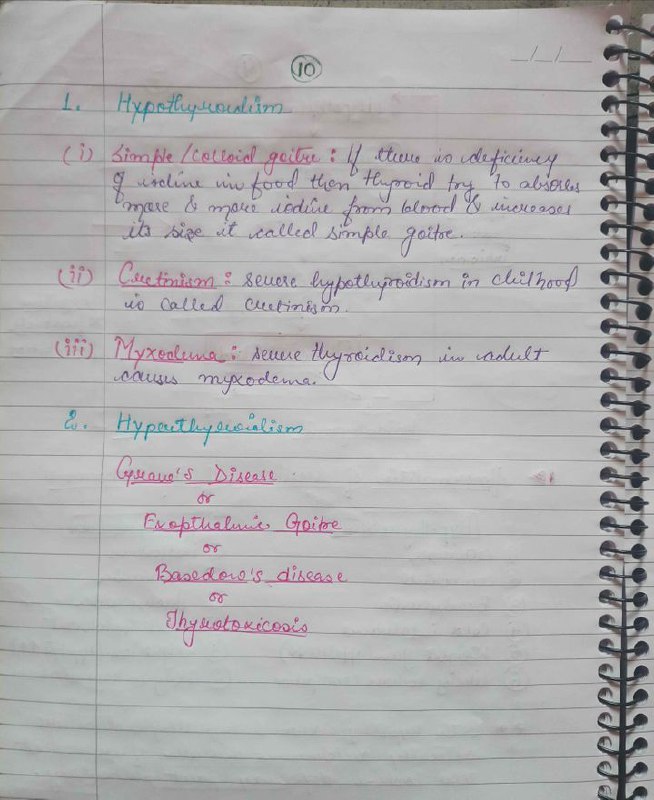 10
_/_/_
1. Hypothyroidism
(i) Simple/Colloid goitre : If there is deficiency
of iodine in food then thyroid try to absorbs
more & more iodine from blood & increases
its size it called simple goitre.
(ii) Cretinism : severe hypothyroidism in chilhood
is called cretinism.
(iii) Myxedema : severe thyroidism in adult
causes myxodema.
2. Hyperthyroidism
Grave's Disease
or
Exopthalmic Goitre
or
Basedow's disease
or
Thyrotoxicosis